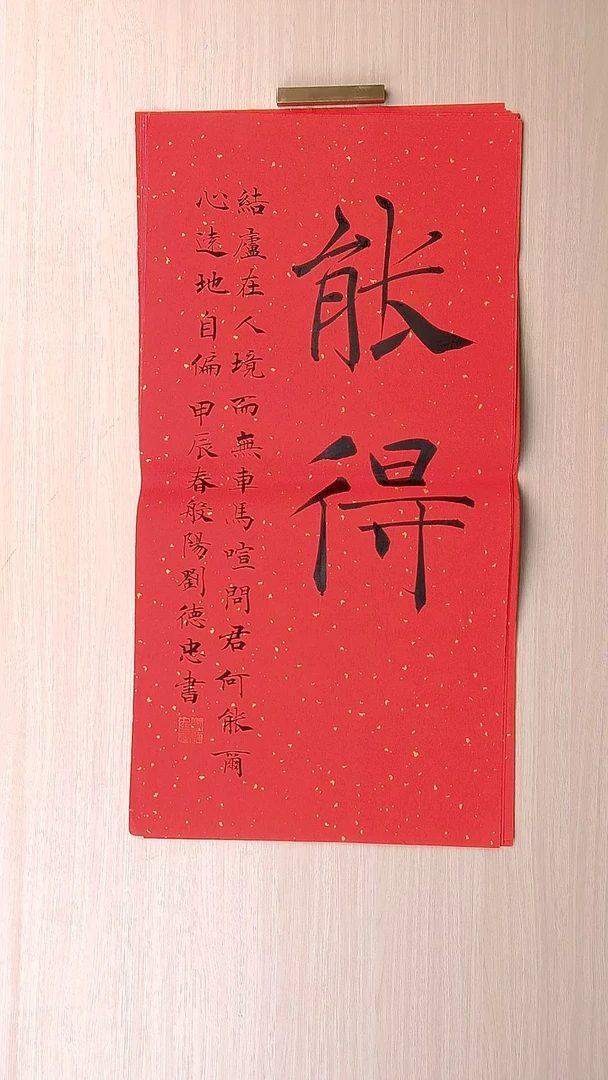 能得
結廬在人境而無車馬喧問君何能爾
心遠地自偏甲辰春般陽劉德忠書